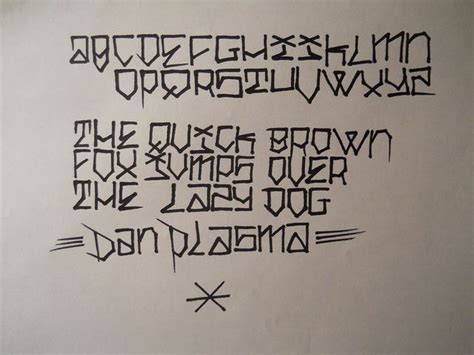 ABCDEFGHIJKLMN
OPQRSTUVWXYZ
THE QUICK BROWN
FOX JUMPS OVER
THE LAZY DOG
Dan Plasma